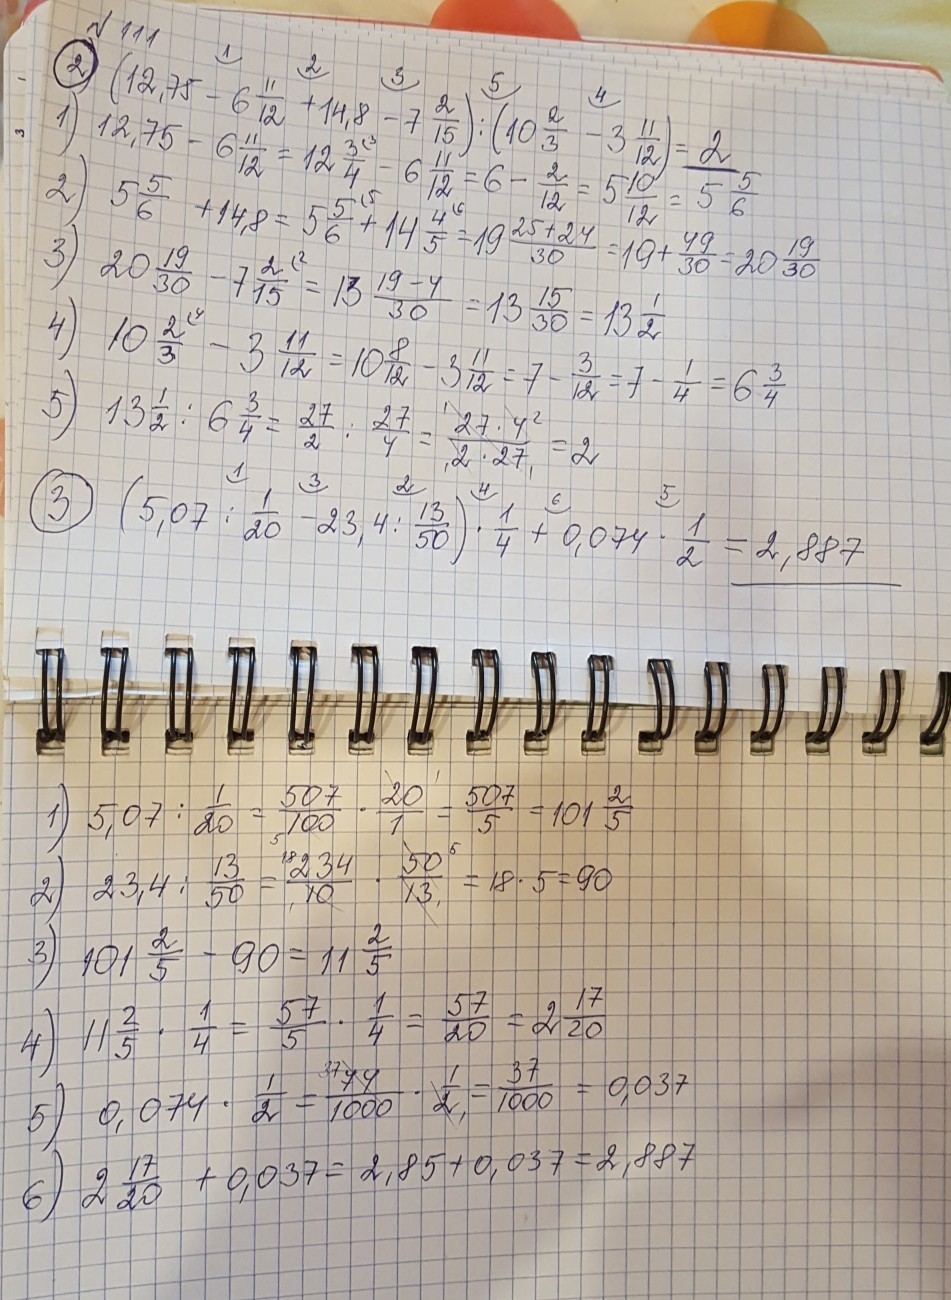 № 111
② (12,75 - 6 11/12 + 14,8 - 7 2/15) : (10 2/3 - 3 11/12) = 2
1) 12,75 - 6 11/12 = 12 3/4 - 6 11/12 = 6 - 2/12 = 5 10/12 = 5 5/6
2) 5 5/6 + 14,8 = 5 5/6 + 14 4/5 = 19 25+24/30 = 19 + 49/30 = 20 19/30
3) 20 19/30 - 7 2/15 = 13 19-4/30 = 13 15/30 = 13 1/2
4) 10 2/3 - 3 11/12 = 10 8/12 - 3 11/12 = 7 - 3/12 = 7 - 1/4 = 6 3/4
5) 13 1/2 : 6 3/4 = 27/2 : 27/4 = 27·4/2·27 = 2
③ (5,07 : 1/20 - 23,4 : 13/50) · 1/4 + 0,074 · 1/2 = 2,887
1) 5,07 : 1/20 = 507/100 · 20/1 = 507/5 = 101 2/5
2) 23,4 : 13/50 = 234/10 · 50/13 = 18 · 5 = 90
3) 101 2/5 - 90 = 11 2/5
4) 11 2/5 · 1/4 = 57/5 · 1/4 = 57/20 = 2 17/20
5) 0,074 · 1/2 = 74/1000 · 1/2 = 37/1000 = 0,037
6) 2 17/20 + 0,037 = 2,85 + 0,037 = 2,887